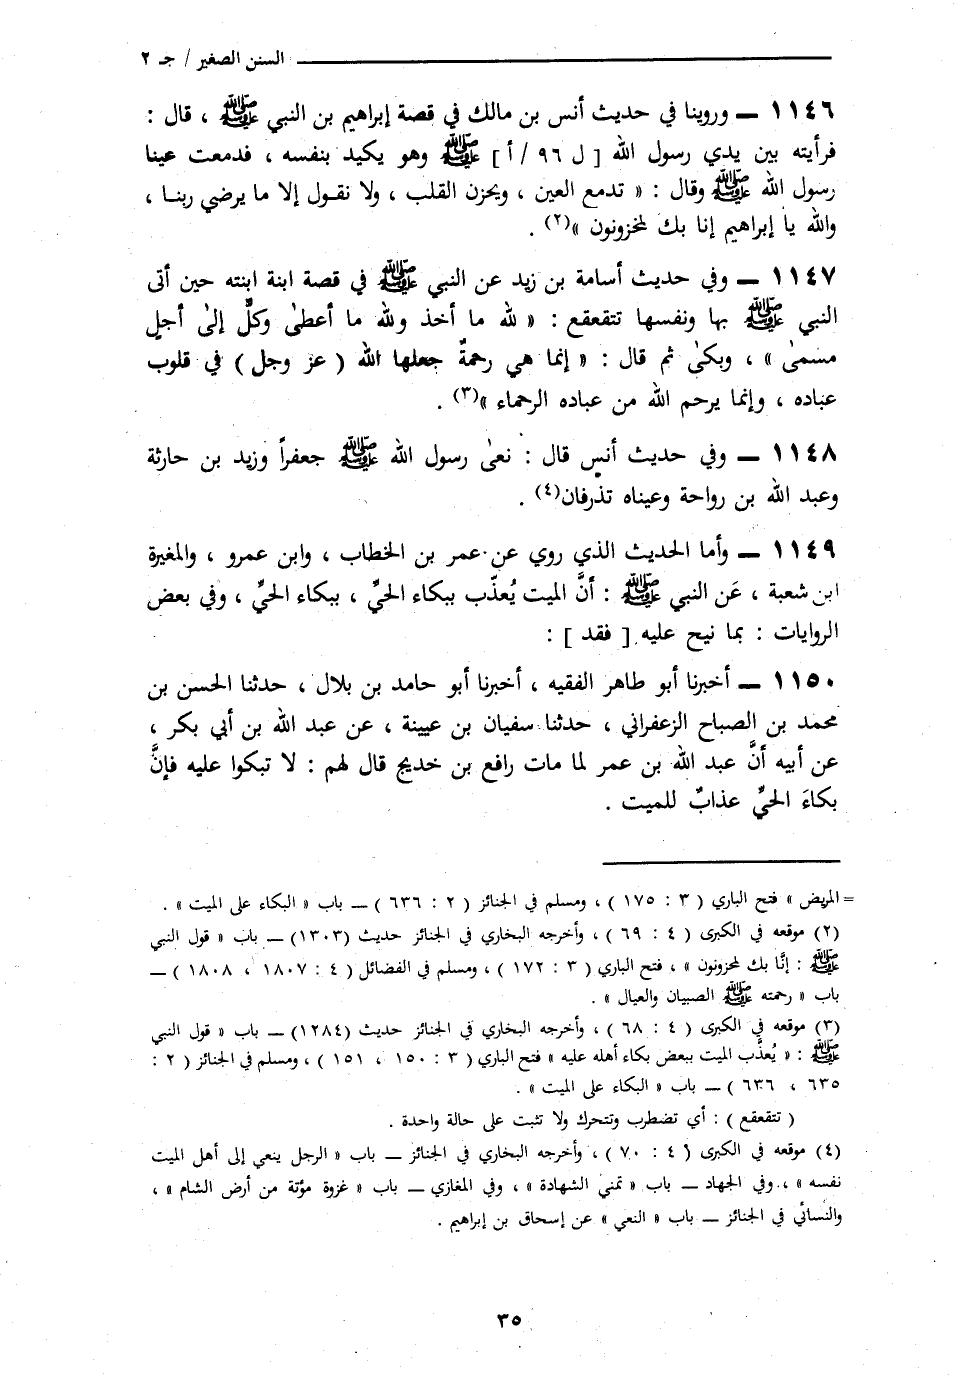 السنن الصغير / جـ ٢
١١٤٦ ــ وروينا في حديث أنس بن مالك في قصة إبراهيم بن النبي ﷺ ، قال :
فرأيته بين يدي رسول الله [ ل ٩٦ / أ ] ﷺ وهو يكيد بنفسه ، فدمعت عينا
رسول الله ﷺ وقال : « تدمع العين ، ويحزن القلب ، ولا نقول إلا ما يرضي ربنا ،
والله يا إبراهيم إنا بك لمحزونون »(٢) .
١١٤٧ ــ وفي حديث أسامة بن زيد عن النبي ﷺ في قصة ابنة ابنته حين أتى
النبي ﷺ بها ونفسها تتقعقع : « لله ما أخذ ولله ما أعطىٰ وكلٌّ إلىٰ أجلٍ
مسمىٰ » ، وبكىٰ ثم قال : « إنما هي رحمةٌ جعلها الله ( عز وجل ) في قلوب
عباده ، وإنما يرحم الله من عباده الرحماء »(٣) .
١١٤٨ ــ وفي حديث أنسٍ قال : نعىٰ رسول الله ﷺ جعفراً وزيد بن حارثة
وعبد الله بن رواحة وعيناه تذرفان(٤) .
١١٤٩ ــ وأما الحديث الذي روي عن عمر بن الخطاب ، وابن عمرو ، والمغيرة
ابن شعبة ، عَن النبي ﷺ : أنَّ الميت يُعذّب ببكاء الحيِّ ، ببكاء الحيِّ ، وفي بعض
الروايات : بما نيح عليه [ فقد ] :
١١٥٠ ــ أخبرنا أبو طاهر الفقيه ، أخبرنا أبو حامد بن بلال ، حدثنا الحسن بن
محمد بن الصباح الزعفراني ، حدثنا سفيان بن عيينة ، عن عبد الله بن أبي بكر ،
عن أبيه أنَّ عبد الله بن عمر لما مات رافع بن خديج قال لهم : لا تبكوا عليه فإنَّ
بكاءَ الحيِّ عذابٌ للميت .
= المريض » فتح الباري ( ٣ : ١٧٥ ) ، ومسلم في الجنائز ( ٢ : ٦٣٦ ) ــ باب « البكاء على الميت » .
(٢) موقعه في الكبرى ( ٤ : ٦٩ ) ، وأخرجه البخاري في الجنائز حديث (١٣٠٣) ــ باب « قول النبي
ﷺ : إنَّا بك لمحزونون » ، فتح الباري ( ٣ : ١٧٢ ) ، ومسلم في الفضائل ( ٤ : ١٨٠٧ ، ١٨٠٨ ) ــ
باب « رحمته ﷺ الصبيان والعيال » .
(٣) موقعه في الكبرى ( ٤ : ٦٨ ) ، وأخرجه البخاري في الجنائز حديث (١٢٨٤) ــ باب « قول النبي
ﷺ : « يُعذَّب الميت ببعض بكاء أهله عليه » فتح الباري ( ٣ : ١٥٠ ، ١٥١ ) ، ومسلم في الجنائز ( ٢ :
٦٣٥ ، ٦٣٦ ) ــ باب « البكاء على الميت » .
( تتقعقع ) : أي تضطرب وتتحرك ولا تثبت على حالة واحدة .
(٤) موقعه في الكبرى ( ٤ : ٧٠ ) ، وأخرجه البخاري في الجنائز ــ باب « الرجل ينعي إلى أهل الميت
نفسه » ، وفي الجهاد ــ باب « تمني الشهادة » ، وفي المغازي ــ باب « غزوة مؤتة من أرض الشام » ،
والنسائي في الجنائز ــ باب « النعي » عن إسحاق بن إبراهيم .
٣٥